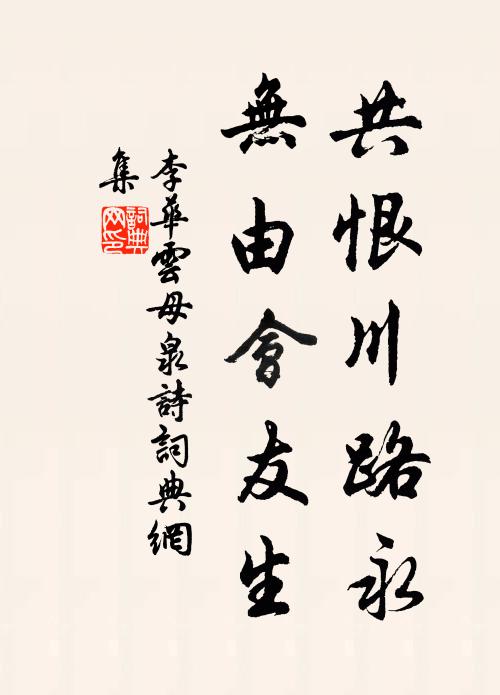 共恨川路永
無由會友生
李華雲母泉詩詞典網
集
詞典網印